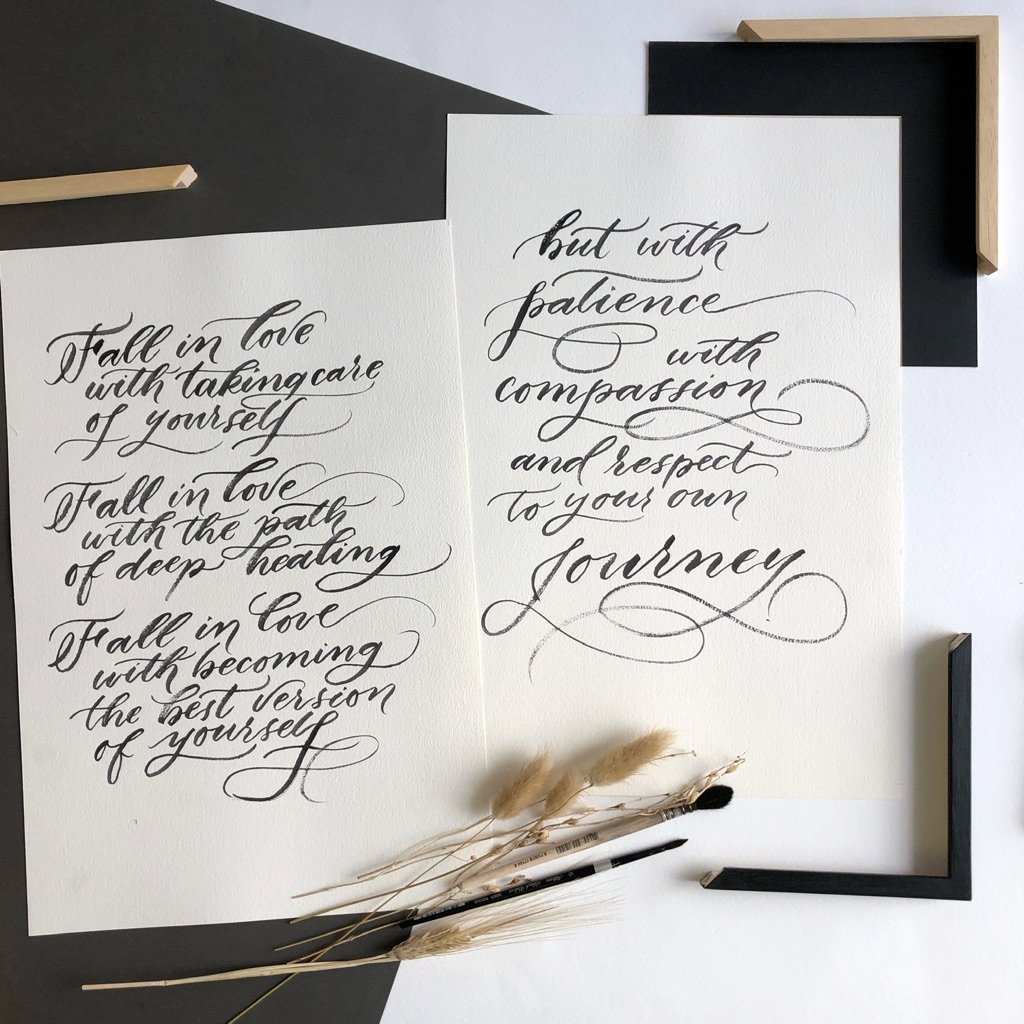 Fall in love
with taking care
of yourself
Fall in love
with the path
of deep healing
Fall in love
with becoming
the best version
of yourself
but with
patience
with
compassion
and respect
to your own
journey